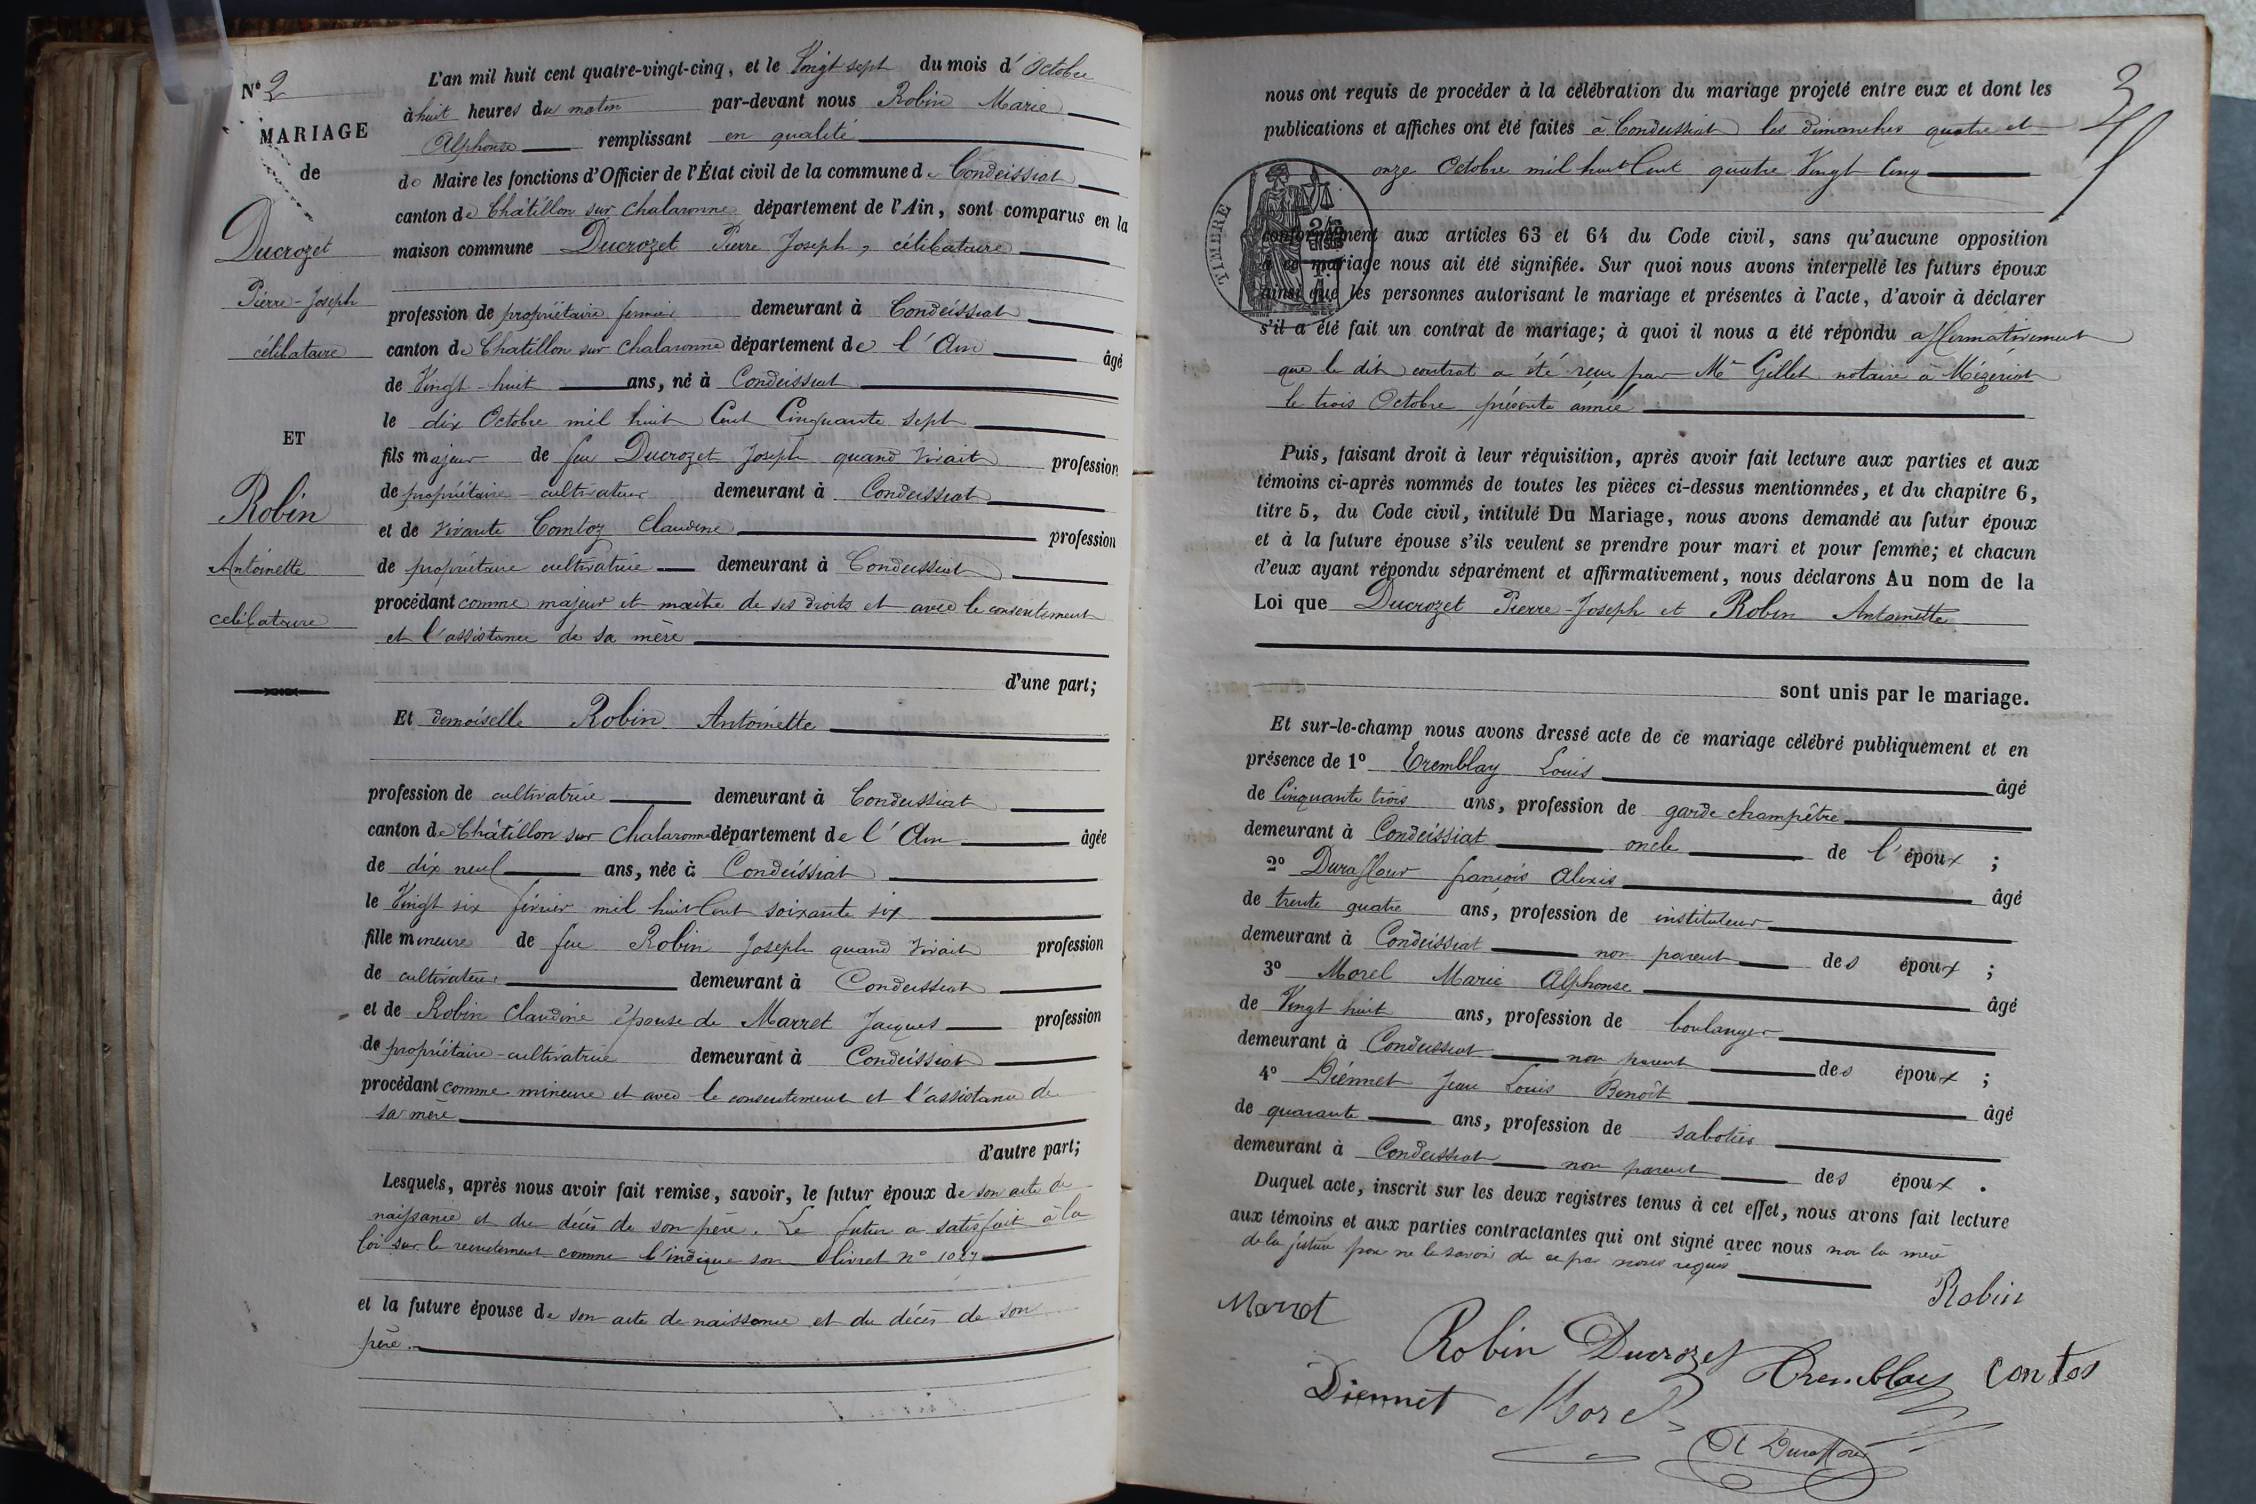 N° 2
MARIAGE
de
Ducrozet
Pierre-Joseph
célibataire
ET
Robin
Antoinette
célibataire
L'an mil huit cent quatre-vingt-cinq, et le Vingt sept du mois d'Octobre
à huit heures du matin par-devant nous Robin Marie
Alphonse remplissant en qualité
de Maire les fonctions d'Officier de l'État civil de la commune de Condeissiat
canton de Châtillon sur Chalaronne département de l'Ain, sont comparus en la
maison commune Ducrozet Pierre Joseph, célibataire
profession de propriétaire fermier demeurant à Condeissiat
canton de Chatillon sur Chalaronne département de l'Ain âgé
de Vingt-huit ans, né à Condeissiat
le dix Octobre mil huit Cent Cinquante sept
fils majeur de feu Ducrozet Joseph quand vivait profession
de propriétaire-cultivateur demeurant à Condeissiat
et de vivante Comtoz Claudine profession
de propriétaire cultivatrice demeurant à Condeissiat
procédant comme majeur et maître de ses droits et avec le consentement
et l'assistance de sa mère
d'une part;
Et demoiselle Robin Antoinette
profession de cultivatrice demeurant à Condeissiat
canton de Châtillon sur Chalaronne département de l'Ain âgée
de dix neuf ans, née à Condeissiat
le Vingt six février mil huit Cent soixante six
fille mineure de feu Robin Joseph quand vivait profession
de cultivateur demeurant à Condeissiat
et de Robin Claudine épouse de Marret Jacques profession
de propriétaire-cultivatrice demeurant à Condeissiat
procédant comme mineure et avec le consentement et l'assistance de
sa mère
d'autre part;
Lesquels, après nous avoir fait remise, savoir, le futur époux de son acte de
naissance et du décès de son père. Le futur a satisfait à la
loi sur le recrutement comme l'indique son livret n° 1027
et la future épouse de son acte de naissance et du décès de son
père.
3
nous ont requis de procéder à la célébration du mariage projeté entre eux et dont les
publications et affiches ont été faites à Condeissiat les dimanches quatre et
onze Octobre mil huit Cent quatre Vingt Cinq
TIMBRE
conformément aux articles 63 et 64 du Code civil, sans qu'aucune opposition
à ce mariage nous ait été signifiée. Sur quoi nous avons interpellé les futurs époux
ainsi que les personnes autorisant le mariage et présentes à l'acte, d'avoir à déclarer
s'il a été fait un contrat de mariage; à quoi il nous a été répondu affirmativement
que le dit contrat a été reçu par Me Gillet notaire à Mézériat
le trois Octobre présente année
Puis, faisant droit à leur réquisition, après avoir fait lecture aux parties et aux
témoins ci-après nommés de toutes les pièces ci-dessus mentionnées, et du chapitre 6,
titre 5, du Code civil, intitulé Du Mariage, nous avons demandé au futur époux
et à la future épouse s'ils veulent se prendre pour mari et pour femme; et chacun
d'eux ayant répondu séparément et affirmativement, nous déclarons Au nom de la
Loi que Ducrozet Pierre-Joseph et Robin Antoinette
sont unis par le mariage.
Et sur-le-champ nous avons dressé acte de ce mariage célébré publiquement et en
présence de 1° Tremblay Louis âgé
de Cinquante trois ans, profession de garde champêtre
demeurant à Condeissiat oncle de l'époux ;
2° Duraffour françois Alexis âgé
de trente quatre ans, profession de instituteur
demeurant à Condeissiat non parent des époux ;
3° Morel Marie Alphonse âgé
de Vingt huit ans, profession de boulanger
demeurant à Condeissiat non parent des époux ;
4° Diénnet Jean Louis Benoît âgé
de quarante ans, profession de sabotier
demeurant à Condeissiat non parent des époux .
Duquel acte, inscrit sur les deux registres tenus à cet effet, nous avons fait lecture
aux témoins et aux parties contractantes qui ont signé avec nous non la mère
de la future pour ne le savoir de ce par nous requis
Robin
Marret
Robin Ducrozet Tremblay Contos
Diennet Morel
A Duraffour